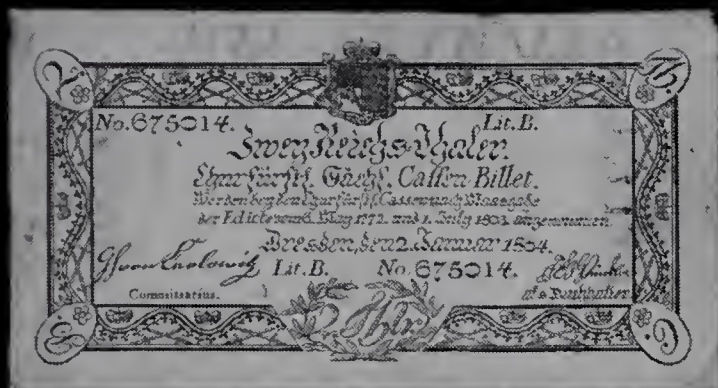 No. 675014. Lit. B.
Zwey Reichs-Thaler.
Churfürstl. Sächs. Cassen-Billet.
Werden bey den Churfürstl. Cassen nach Maasgabe
der Edicte vom 6. May 1772. und 1. July 1803. angenommen
Dresden, den 2. Januar 1804.
Lit. B. No. 675014.
Commissarius. als Buchhalter
2 Thlr